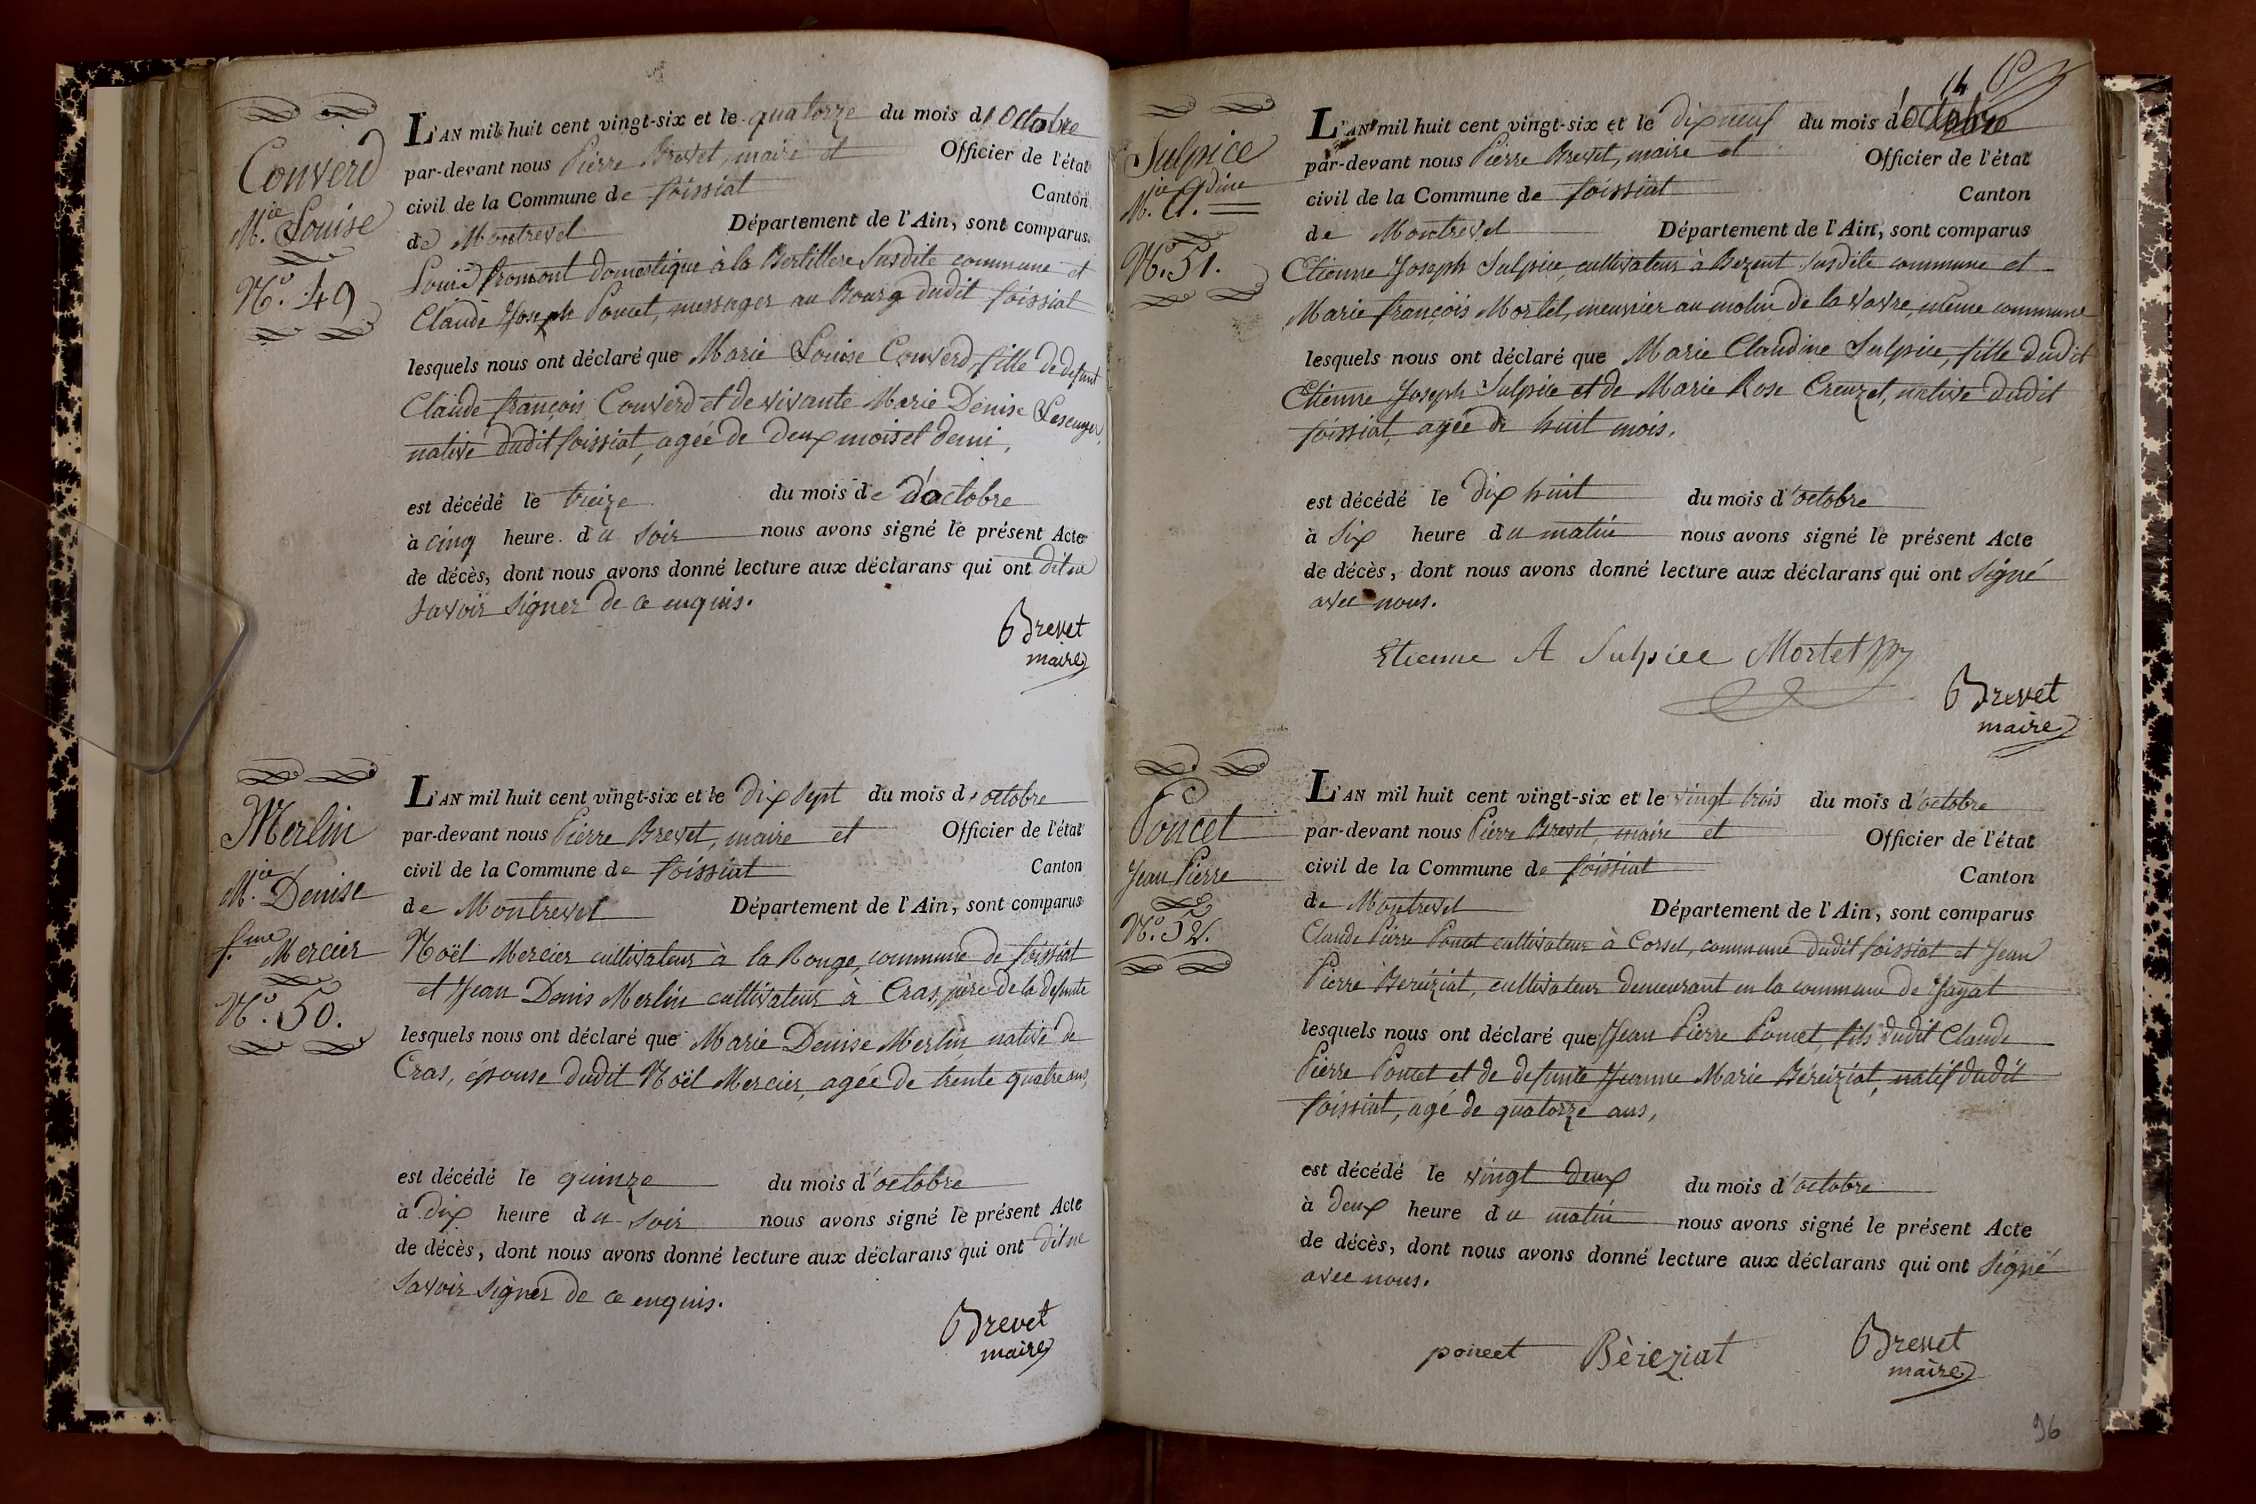 Converd
M.ie Louise
N.o 49
L'AN mil huit cent vingt-six et le quatorze du mois d'Octobre
par-devant nous Pierre Brevet, maire et Officier de l'état
civil de la Commune de foissiat Canton
de Montrevel Département de l'Ain, sont comparus
Louis fromont domestique à la Bertillere susdite commune et
Claude Joseph Poncet, messager au Bourg dudit foissiat
lesquels nous ont déclaré que Marie Louise Converd, fille de defunt
Claude françois Converd et de vivante Marie Denise
native dudit foissiat, agée de deux mois et demi,
est décédé le treize du mois de d'octobre
à cinq heure du soir nous avons signé le présent Acte
de décès, dont nous avons donné lecture aux déclarans qui ont dit ne
savoir signer de ce enquis.
Brevet
maire
Merlin
M.ie Denise
f.me Mercier
N.o 50.
L'AN mil huit cent vingt-six et le dix sept du mois d'octobre
par-devant nous Pierre Brevet, maire et Officier de l'état
civil de la Commune de foissiat Canton
de Montrevel Département de l'Ain, sont comparus
Noël Mercier cultivateur à la Ronge, commune de foissiat
et Jean Denis Merlin cultivateur à Cras, père de la defunte
lesquels nous ont déclaré que Marie Denise Merlin native de
Cras, épouse dudit Noël Mercier, agée de trente quatre ans,
est décédé le quinze du mois d'octobre
à dix heure du soir nous avons signé le présent Acte
de décès, dont nous avons donné lecture aux déclarans qui ont dit ne
savoir signer de ce enquis.
Brevet
maire
14
Sulpice
M.ie C.dine
N.o 51.
L'AN mil huit cent vingt-six et le dix neuf du mois d'octobre
par-devant nous Pierre Brevet, maire et Officier de l'état
civil de la Commune de foissiat Canton
de Montrevel Département de l'Ain, sont comparus
Etienne Joseph Sulpice cultivateur à Bezent susdite commune et
Marie françois Mortel, meunier au molin de la vavre, même commune
lesquels nous ont déclaré que Marie Claudine Sulpice, fille dudit
Etienne Joseph Sulpice et de Marie Rose Creuzet, native dudit
foissiat, agée de huit mois.
est décédé le dix huit du mois d'octobre
à six heure du matin nous avons signé le présent Acte
de décès, dont nous avons donné lecture aux déclarans qui ont signé
avec nous.
Etienne A Sulpice Mortet
Brevet
maire
Poncet
Jean Pierre
N.o 52.
L'AN mil huit cent vingt-six et le vingt trois du mois d'octobre
par-devant nous Pierre Brevet, maire et Officier de l'état
civil de la Commune de foissiat Canton
de Montrevel Département de l'Ain, sont comparus
Claude Pierre Poncet cultivateur à Corsel, commune dudit foissiat et Jean
Pierre Beréiziat, cultivateur demeurant en la commune de Jayat
lesquels nous ont déclaré que Jean Pierre Poncet, fils dudit Claude
Pierre Poncet et de defunte Jeanne Marie Béréiziat, natif dudit
foissiat, agé de quatorze ans,
est décédé le vingt deux du mois d'octobre
à deux heure du matin nous avons signé le présent Acte
de décès, dont nous avons donné lecture aux déclarans qui ont signé
avec nous.
poncet Bèreziat
Brevet
maire
96